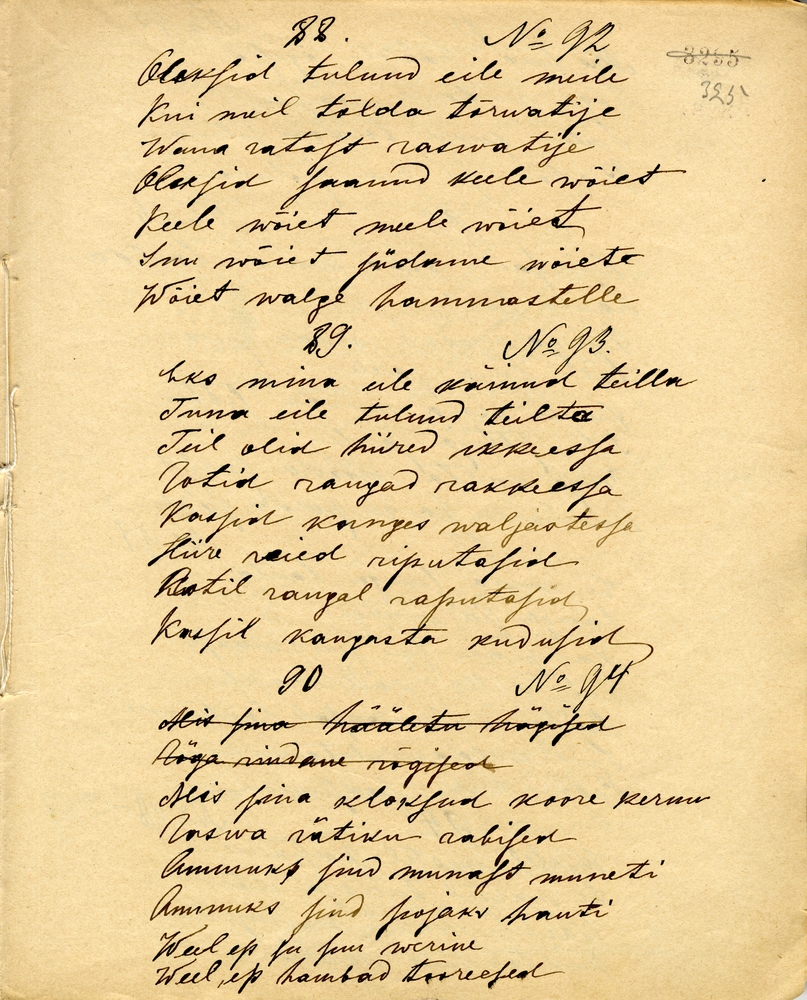 88. № 92
3255
325
Oleksid tulnud eile meile
Kui meil tõlda tõrwatije
Wana ratast raswatije
Oleksid saanud keele wõiet
Keele wõiet meele wõiet
Suu wõiet südame wõiete
Wõiet walge hammastelle
89. № 93.
Eks mina eile käinud teilla
Tuna eile tulnud teilta
Teil olid hiired ikkeessa
Rotid rangad rakkeessa
Kassid kanges waljastessa
Hiire reied riputasid
Rotil rangal raputasid
Kassil kangasta kudusid
90 № 94
Mis sina hääletu hägised
Röga rindane rögised
Mis sina kloksud koore kernu
Raswa rätiku rabised
Ammuks sind munast muneti
Ammuks sind pojaks hauti
Weel ep ju suu werine
Weel ep hambad tooreesed